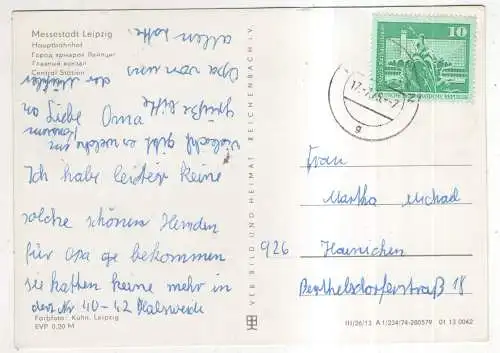 Messestadt Leipzig
Hauptbahnhof
Город ярмарок Лейпциг
Главный вокзал
Central Station
Liebe Oma
Ich habe leider keine
solche schönen Hemden
für Opa ge bekommen
sie hatten keine mehr in
der Nr 40-42 Halsweide
vielleicht gibt es welche
Grüße bitte
Opa von uns
allen
Farbfoto: Kuhn, Leipzig
EVP 0,20 M
VEB BILD UND HEIMAT REICHENBACH I.V.
10
DEUTSCHE DEMOKRATISCHE REPUBLIK
Frau
Martha Michael
926 Hainichen
Berthelsdorferstraß 18
III/26/13 A 1/234/74-280579 01 13 0042